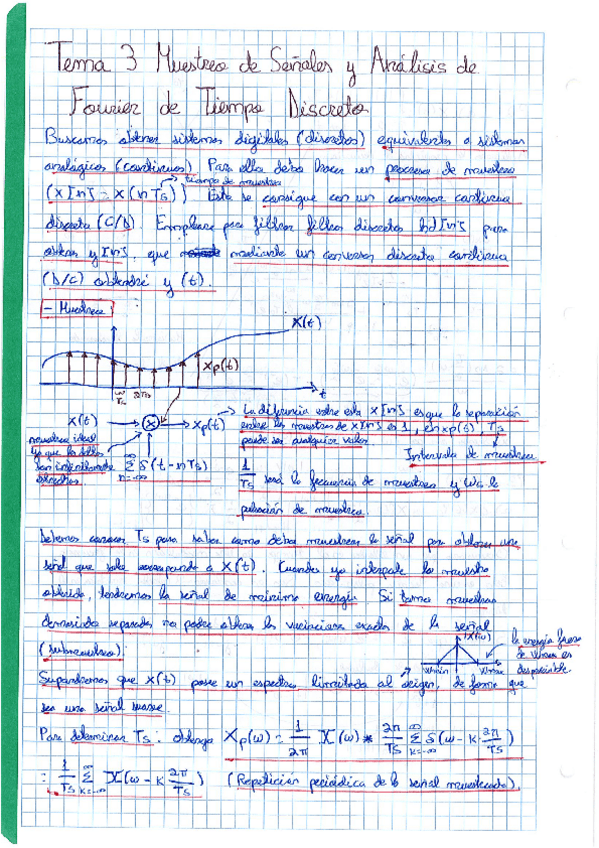 Tema 3 Muestreo de Señales y Análisis de
Fourier de Tiempo Discreto
Buscamos obtener sistemas digitales (discretos) equivalentes a sistemas
analógicos (continuos). Para ello debo hacer un proceso de muestreo
(x[n] = x(nTs)) Esto se consigue con un conversor continuo
tiempo de muestreo
discreto (C/D). Emplease para filtrar filtros discretos hd[n] para
obtener y[n], que mediante un conversor discreto continuo
(D/C) obtendré y(t).
- Muestreo
x(t)
xp(t)
Ts 2Ts
t
x(t) → × → xp(t)
Σ δ(t-nTs)
n=-∞
muestreo ideal
ya que los deltas
son infinitamente
estrechos.
La diferencia entre esta x[n] es que la separación
entre las muestras de x[n] es 1, en xp(t), Ts
puede ser cualquier valor
Intervalo de muestreo
1/Ts será la frecuencia de muestreo y ωs la
pulsación de muestreo.
Debemos conocer Ts para saber como debo muestrear la señal para obtener una
señal que solo corresponda a x(t). Cuando ya interpole la muestra
obtenida, tendremos la señal de mínima energía. Si tomo muestras
demasiado separadas no podré obtener las variaciones exactas de la señal
(submuestreo).
X(ω)
ωmin ωmax
la energía fuera
de ωmax es
despreciable.
Supondremos que x(t) posee un espectro limitado al origen, de forma que
sea una señal suave.
Para determinar Ts: obtengo Xp(ω) = 1/2π X(ω) * 2π/Ts Σ δ(ω - k 2π/Ts)
k=-∞
= 1/Ts Σ X(ω - k 2π/Ts) (Repetición periódica de la señal muestreada).
k=-∞